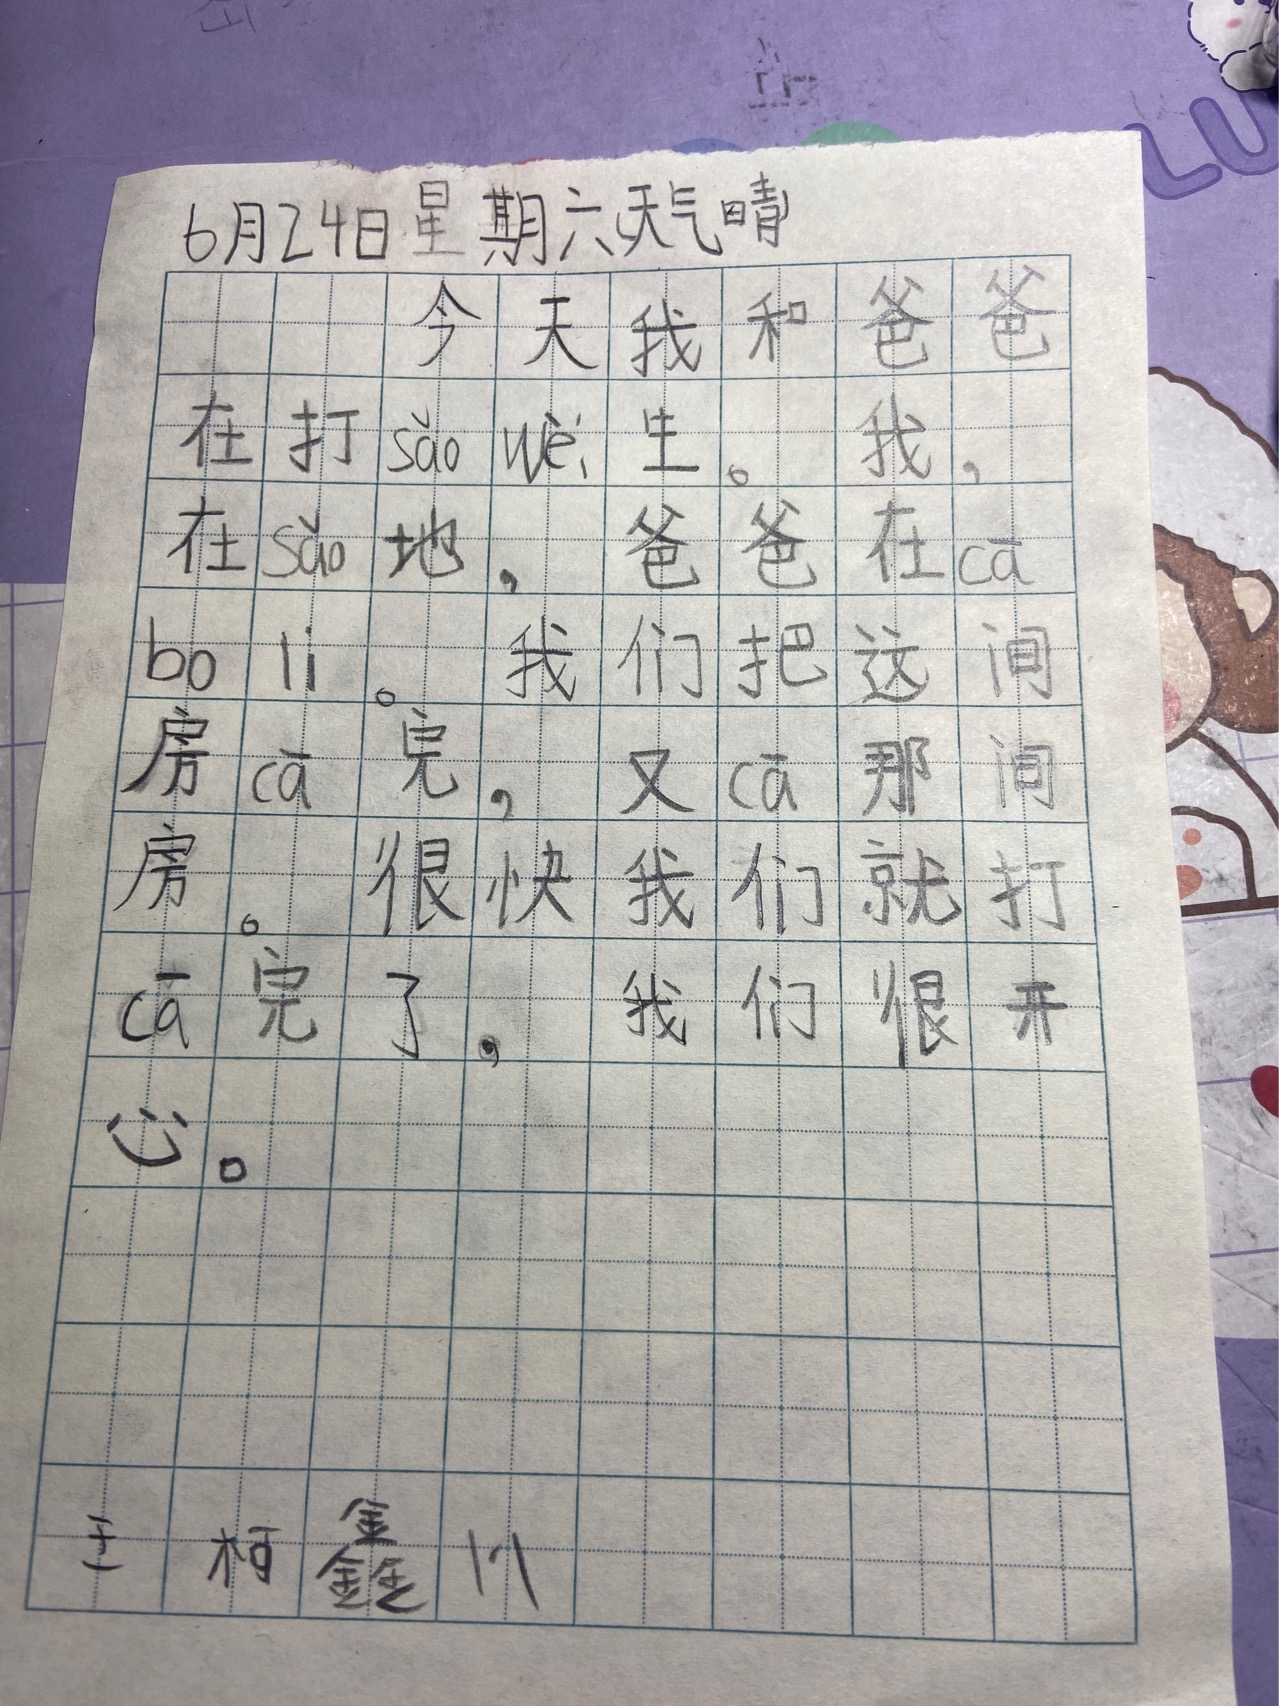 LU
6月24日星期六天气晴
今天我和爸爸
在打sǎo wèi生。我,
在sǎo地,爸爸在cā
bo li。我们把这间
房cā完,又cā那间
房。很快我们就打
cā完了,我们很开
心。
王柯鑫川